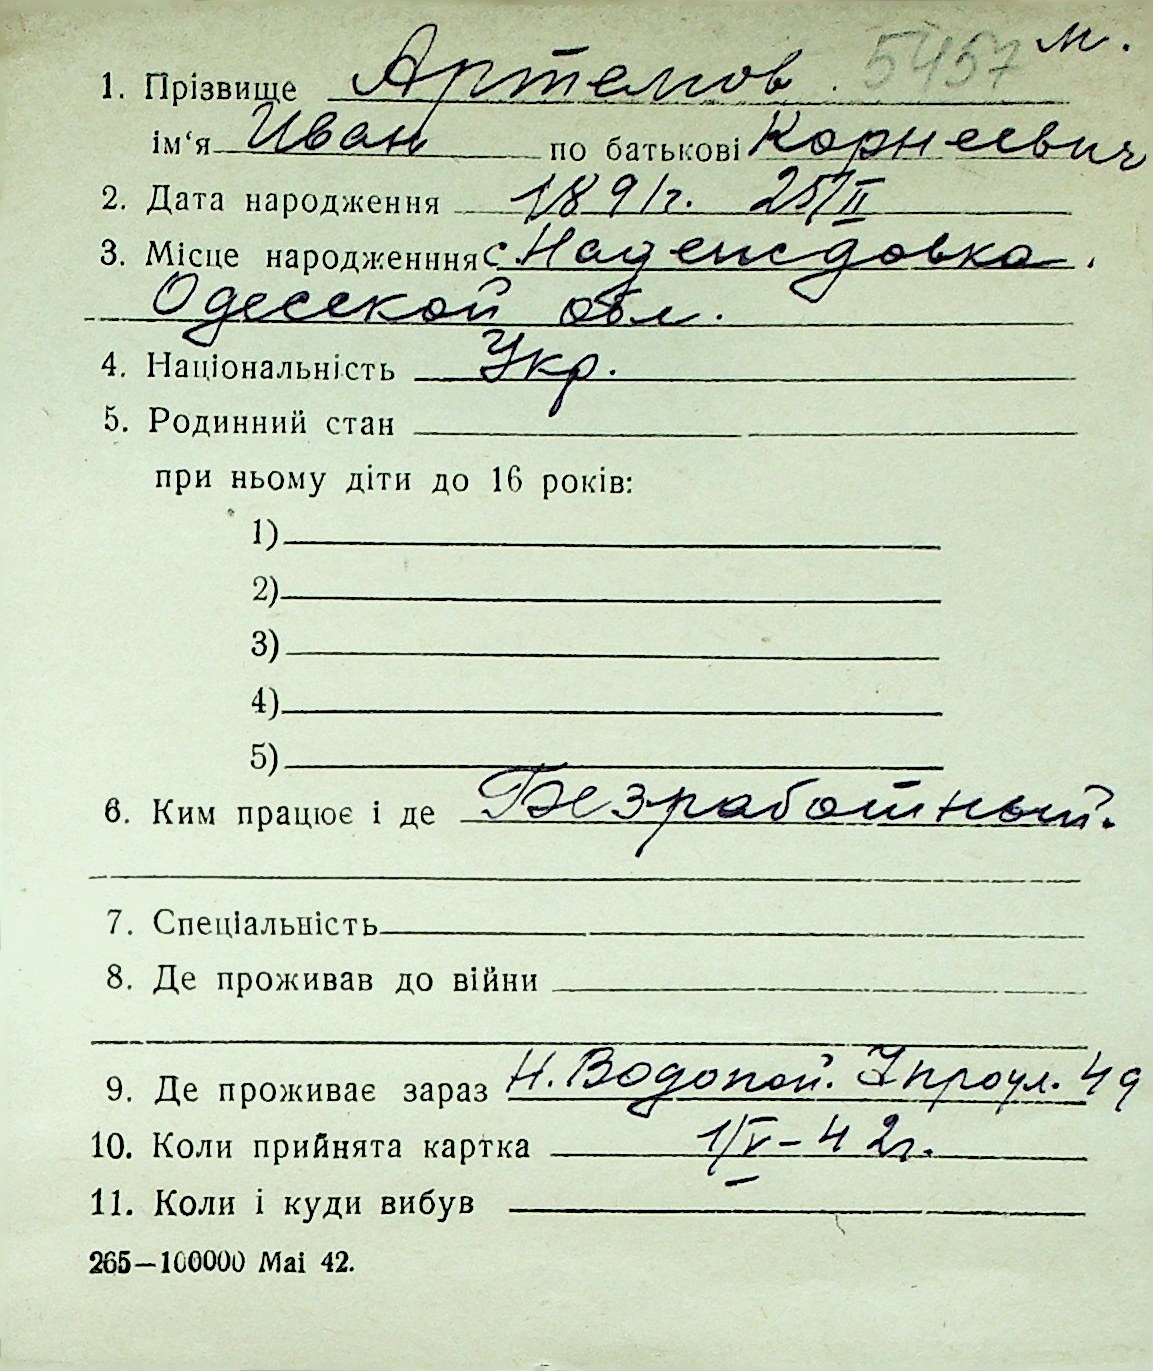 м.
1. Прізвище Артемов. 5457
ім‘я Иван по батькові Корнеевич
2. Дата народження 1891г. 25/II
3. Місце народженння с. Надеждовка.
Одесской обл.
4. Національність Укр.
5. Родинний стан
при ньому діти до 16 років:
1)
2)
3)
4)
5)
6. Ким працює і де Безработный.
7. Спеціальність
8. Де проживав до війни
9. Де проживає зараз Н. Водопой. 7 проул. 49
10. Коли прийнята картка 1/V – 42г.
11. Коли і куди вибув
265—100000 Mai 42.